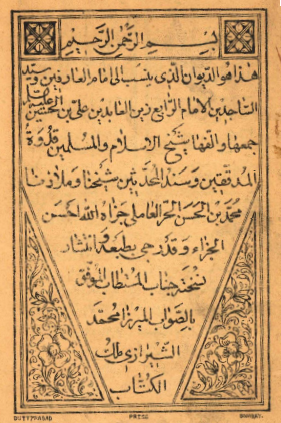 بسم الله الرحمن الرحيم
هذا هو الديوان الذي ينسب الى امام العارفين وسيد
الساجدين الامام الرابع زين العابدين علي بن الحسين
جمعها وألفها شيخ الاسلام والمسلمين قدوة
المدققين وسند المحدثين شيخنا وملاذنا
محمد بن الحسن الحر العاملي جزاه الله احسن
الجزاء وقد رجى بطبعه وانتشار
نسخته جناب المستطاب الموفق
بالصواب الميرزا محمد
الشيرازي ملك
الكتاب
DUTTPRASAD PRESS BOMBAY.